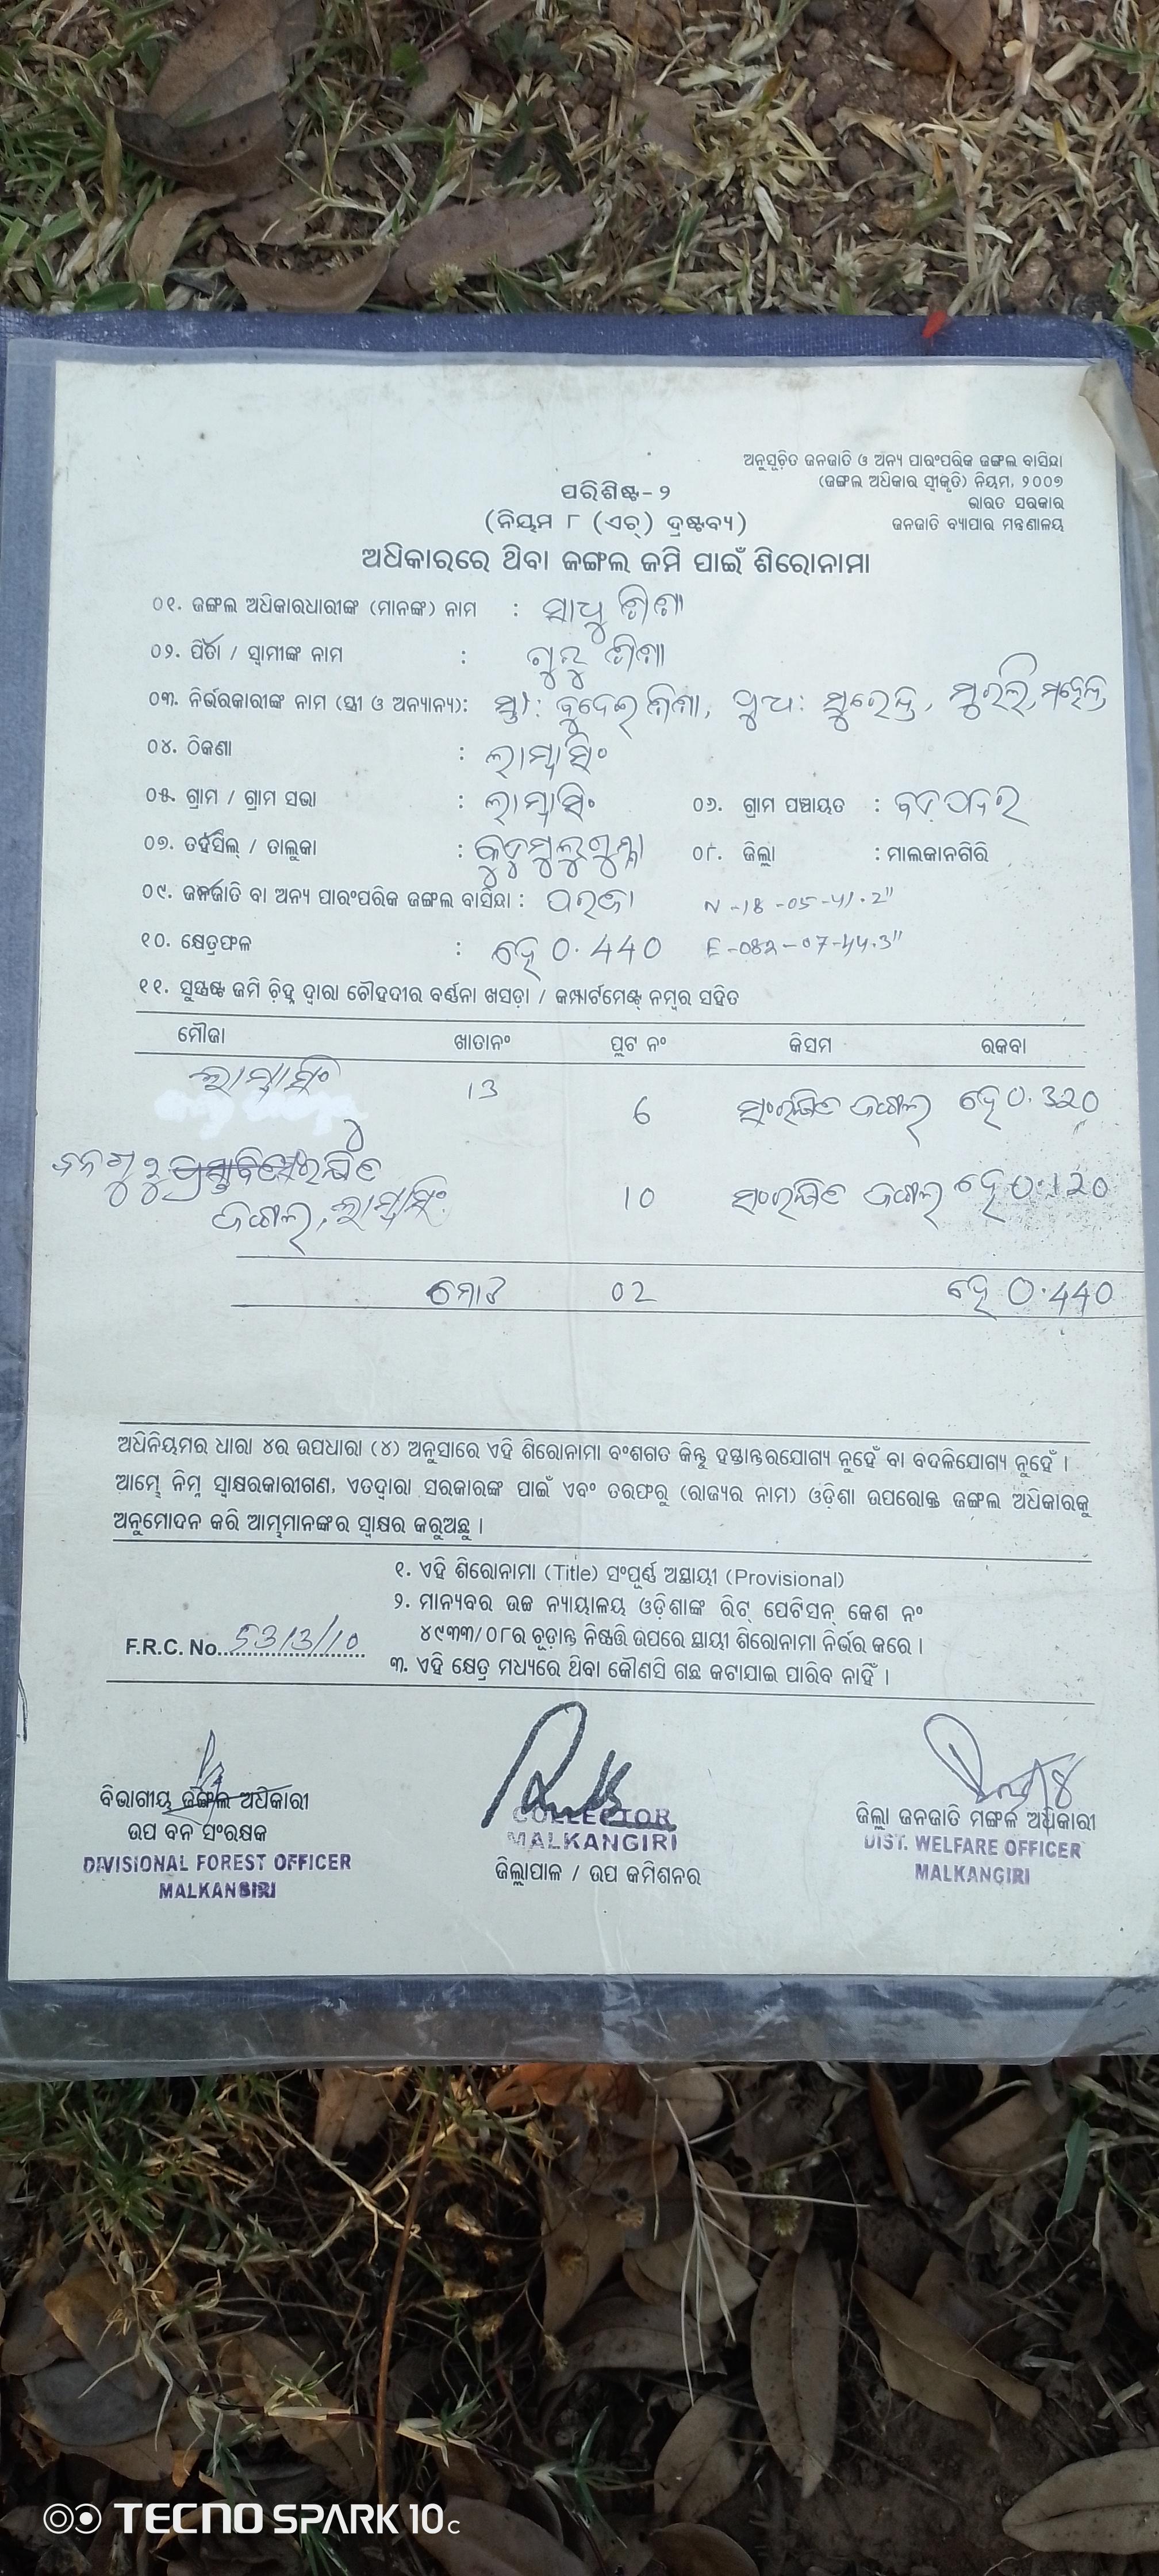 ଅନୁସୂଚିତ ଜନଜାତି ଓ ଅନ୍ୟ ପାରଂପରିକ ଜଙ୍ଗଲ ବାସିନ୍ଦା
(ଜଙ୍ଗଲ ଅଧିକାର ସ୍ୱୀକୃତି) ନିୟମ, ୨୦୦୭
ଭାରତ ସରକାର
ଜନଜାତି ବ୍ୟାପାର ମନ୍ତ୍ରଣାଳୟ
ପରିଶିଷ୍ଟ-୨
(ନିୟମ ୮ (ଏଚ୍) ଦ୍ରଷ୍ଟବ୍ୟ)
ଅଧିକାରରେ ଥିବା ଜଙ୍ଗଲ ଜମି ପାଇଁ ଶିରୋନାମା
୦୧. ଜଙ୍ଗଲ ଅଧିକାରଧାରୀଙ୍କ (ମାନଙ୍କ) ନାମ : ସାଧୁ
୦୨. ପିତା / ସ୍ୱାମୀଙ୍କ ନାମ : ଗୁରୁ
୦୩. ନିର୍ଭରକାରୀଙ୍କ ନାମ (ସ୍ତ୍ରୀ ଓ ଅନ୍ୟାନ୍ୟ): ସ୍ତ୍ରୀ: ପୁଅ: ସୁରେନ୍ଦ୍ର, ମୁରଲି, ମହେନ୍ଦ୍ର
୦୪. ଠିକଣା : ଲାମ୍ବାସିଂ
୦୫. ଗ୍ରାମ / ଗ୍ରାମ ସଭା : ଲାମ୍ବାସିଂ ୦୬. ଗ୍ରାମ ପଞ୍ଚାୟତ :
୦୭. ତହସିଲ୍ / ତାଲୁକା : କୁଡୁମୁଲୁଗୁମ୍ମା ୦୮. ଜିଲ୍ଲା : ମାଲକାନଗିରି
୦୯. ଜନଜାତି ବା ଅନ୍ୟ ପାରଂପରିକ ଜଙ୍ଗଲ ବାସିନ୍ଦା : ପରଜା N-18-05-41.2"
୧୦. କ୍ଷେତ୍ରଫଳ : ହେ 0.440 E-082-07-44.3"
୧୧. ସୁସ୍ପଷ୍ଟ ଜମି ଚିହ୍ନ ଦ୍ୱାରା ଚୌହଦୀର ବର୍ଣ୍ଣନା ଖସଡ଼ା / କମ୍ପାର୍ଟମେଣ୍ଟ୍ ନମ୍ବର ସହିତ
ମୌଜା ଖାତାନଂ ପ୍ଲଟ ନଂ କିସମ ରକବା
ଲାମ୍ବାସିଂ 13 6 ସଂରକ୍ଷିତ ଜଙ୍ଗଲ ହେ 0.320
ଜଙ୍ଗଲ, ଲାମ୍ବାସିଂ 10 ସଂରକ୍ଷିତ ଜଙ୍ଗଲ ହେ 0.120
ମୋଟ 02 ହେ 0.440
ଅଧିନିୟମର ଧାରା ୪ର ଉପଧାରା (୪) ଅନୁସାରେ ଏହି ଶିରୋନାମା ବଂଶଗତ କିନ୍ତୁ ହସ୍ତାନ୍ତରଯୋଗ୍ୟ ନୁହେଁ ବା ବଦଳିଯୋଗ୍ୟ ନୁହେଁ ।
ଆମ୍ଭେ ନିମ୍ନ ସ୍ୱାକ୍ଷରକାରୀଗଣ, ଏତଦ୍ୱାରା ସରକାରଙ୍କ ପାଇଁ ଏବଂ ତରଫରୁ (ରାଜ୍ୟର ନାମ) ଓଡ଼ିଶା ଉପରୋକ୍ତ ଜଙ୍ଗଲ ଅଧିକାରକୁ
ଅନୁମୋଦନ କରି ଆମ୍ଭମାନଙ୍କର ସ୍ୱାକ୍ଷର କରୁଅଛୁ ।
୧. ଏହି ଶିରୋନାମା (Title) ସଂପୂର୍ଣ୍ଣ ଅସ୍ଥାୟୀ (Provisional)
୨. ମାନ୍ୟବର ଉଚ୍ଚ ନ୍ୟାୟାଳୟ ଓଡ଼ିଶାଙ୍କ ରିଟ୍ ପେଟିସନ୍ କେଶ ନଂ
୪୯୩୩/୦୮ର ଚୂଡ଼ାନ୍ତ ନିଷ୍ପତ୍ତି ଉପରେ ସ୍ଥାୟୀ ଶିରୋନାମା ନିର୍ଭର କରେ ।
F.R.C. No. 5313/10
୩. ଏହି କ୍ଷେତ୍ର ମଧ୍ୟରେ ଥିବା କୌଣସି ଗଛ କଟାଯାଇ ପାରିବ ନାହିଁ ।
ବିଭାଗୀୟ ଜଙ୍ଗଲ ଅଧିକାରୀ
ଉପ ବନ ସଂରକ୍ଷକ
DIVISIONAL FOREST OFFICER
MALKANGIRI
COLLECTOR
MALKANGIRI
ଜିଲ୍ଲାପାଳ / ଉପ କମିଶନର
ଜିଲ୍ଲା ଜନଜାତି ମଙ୍ଗଳ ଅଧିକାରୀ
DIST. WELFARE OFFICER
MALKANGIRI
TECNO SPARK 10c